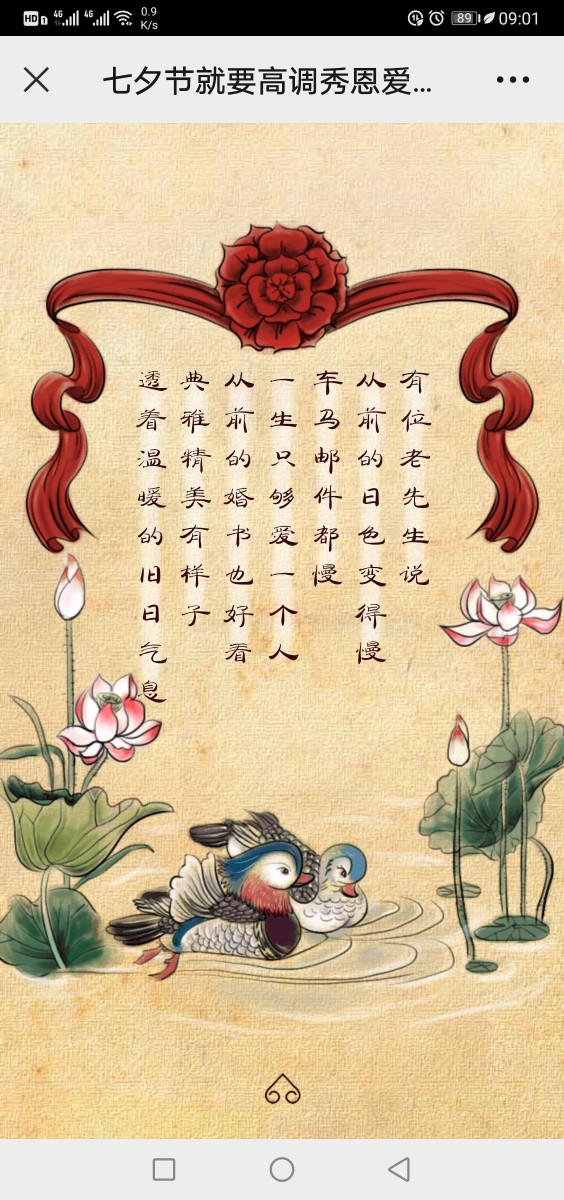 HD 1 4G 4G 0.9 K/s 89 09:01
七夕节就要高调秀恩爱...
有位老先生说
从前的日色变得慢
车马邮件都慢
一生只够爱一个人
从前的婚书也好看
典雅精美有样子
透着温暖的旧日气息